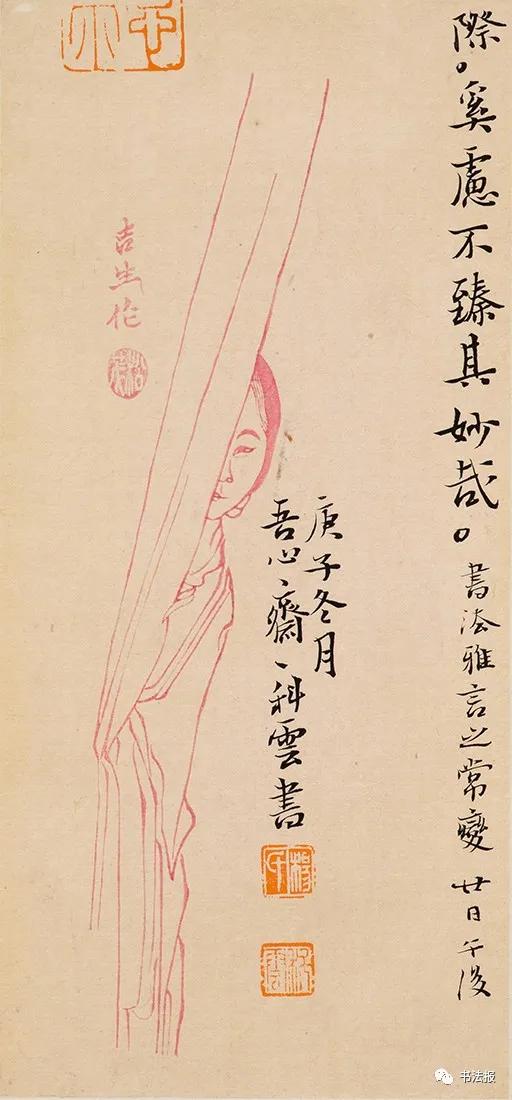 際。奚慮不臻其妙哉。書法雅言之常變 廿日午後
庚子冬月
吾心齋科雲書
吉生作
书法报